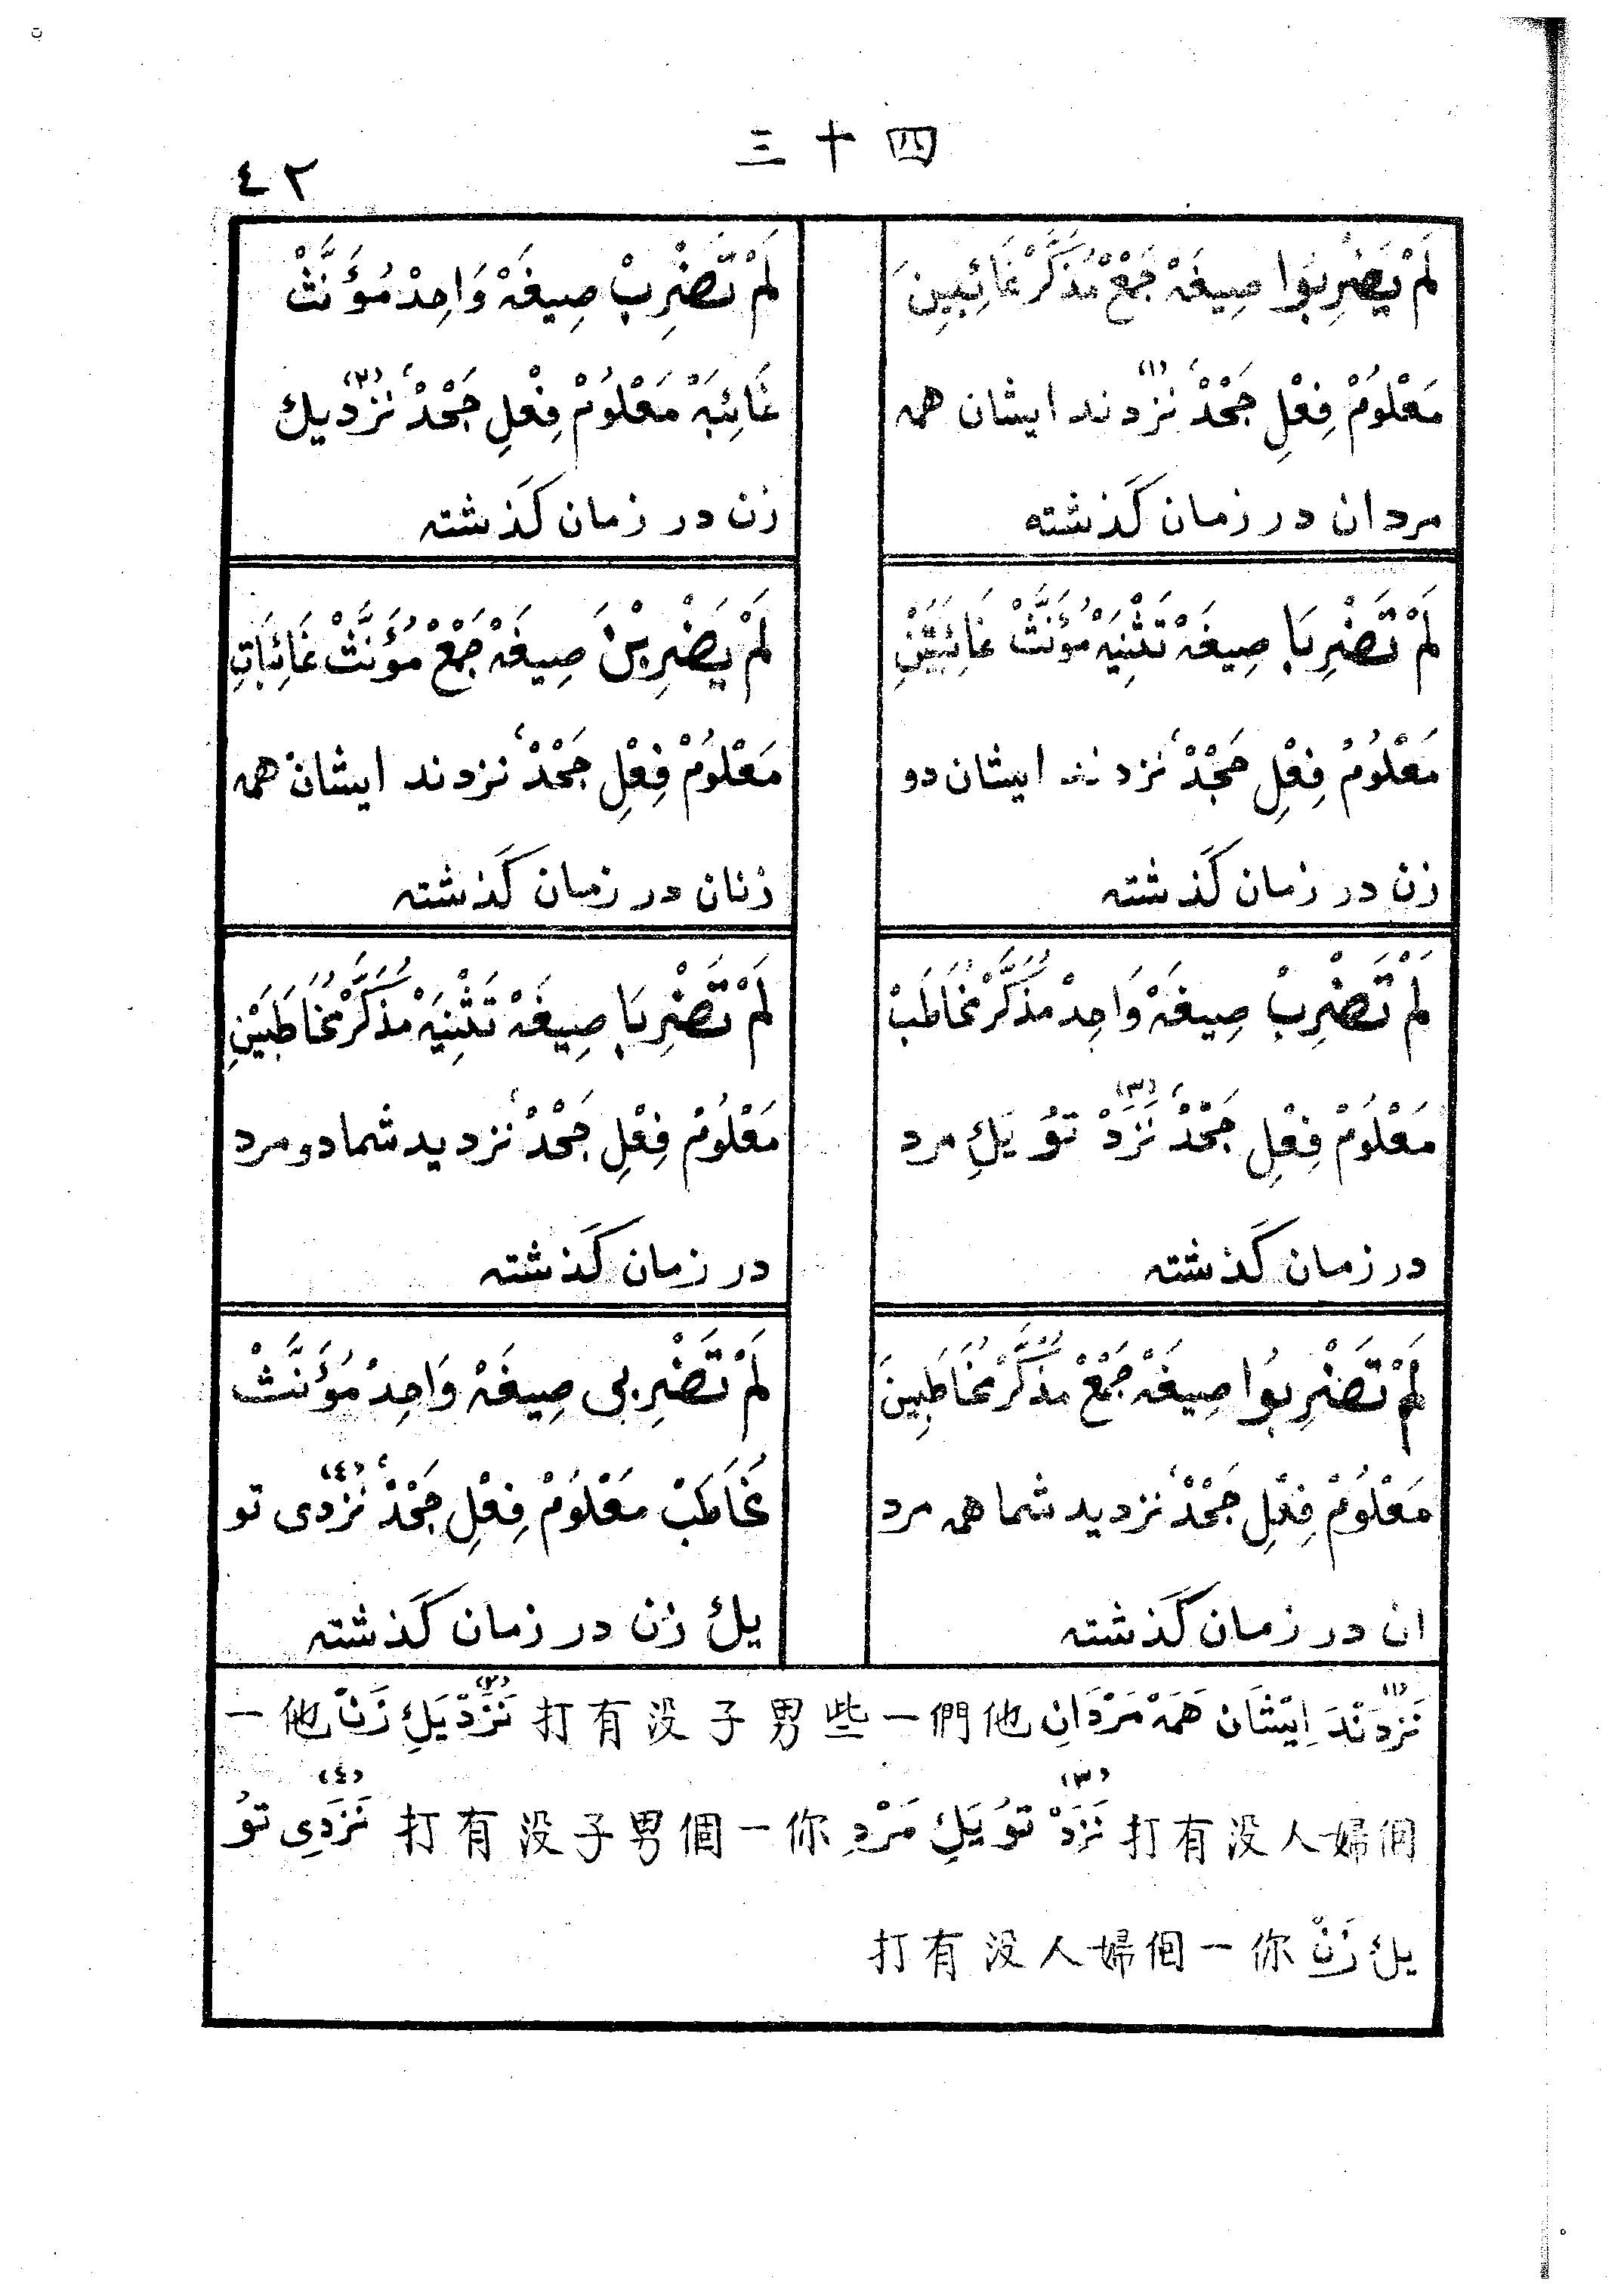 三十四
٤٣
لَمْ يَضْرِبُوا صِيغَهْ جَمْعْ مُذَكَّرْ غَائِبِينَ
مَعْلُومْ فِعْلِ جَحْدْ نزدند (١) ایشان همه
مردان در زمان گذشته
لَمْ تَضْرِبْ صِيغَهْ وَاحِدْ مُؤَنَّثْ
غَائِبَهْ مَعْلُومْ فِعْلِ جَحْدْ نزد (٢) یك
زن در زمان گذشته
لَمْ تَضْرِبَا صِيغَهْ تَثْنِيَهْ مُؤَنَّثْ غَائِبَتَيْنِ
مَعْلُومْ فِعْلِ جَحْدْ نزدند ایشان دو
زن در زمان گذشته
لَمْ يَضْرِبْنَ صِيغَهْ جَمْعْ مُؤَنَّثْ غَائِبَاتِ
مَعْلُومْ فِعْلِ جَحْدْ نزدند ایشان همه
زنان در زمان گذشته
لَمْ تَضْرِبْ صِيغَهْ وَاحِدْ مُذَكَّرْ مُخَاطَبْ
مَعْلُومْ فِعْلِ جَحْدْ نَزَدْ (٣) تُو یَكِ مرد
در زمان گذشته
لَمْ تَضْرِبَا صِيغَهْ تَثْنِيَهْ مُذَكَّرْ مُخَاطَبَيْنِ
مَعْلُومْ فِعْلِ جَحْدْ نزدید شما دو مرد
در زمان گذشته
لَمْ تَضْرِبُوا صِيغَهْ جَمْعْ مُذَكَّرْ مُخَاطَبِينَ
مَعْلُومْ فِعْلِ جَحْدْ نزدید شما همه مرد
ان در زمان گذشته
لَمْ تَضْرِبِی صِيغَهْ وَاحِدْ مُؤَنَّثْ
مُخَاطَبْ مَعْلُومْ فِعْلِ جَحْدْ نزدی (٤) تو
یك زن در زمان گذشته
(١) نَزَدَنْدَ اِیشَان هَمَهْ مَرْدَانِ 他們一些男子没有打 (٢) نَزَدْ یَكِ زَنْ 他一
個婦人没有打 (٣) نَزَدْ تُو یَكِ مَرْدِ 你一個男子没有打 (٤) نَزَدِی تُو
یك زَنْ 你一個婦人没有打